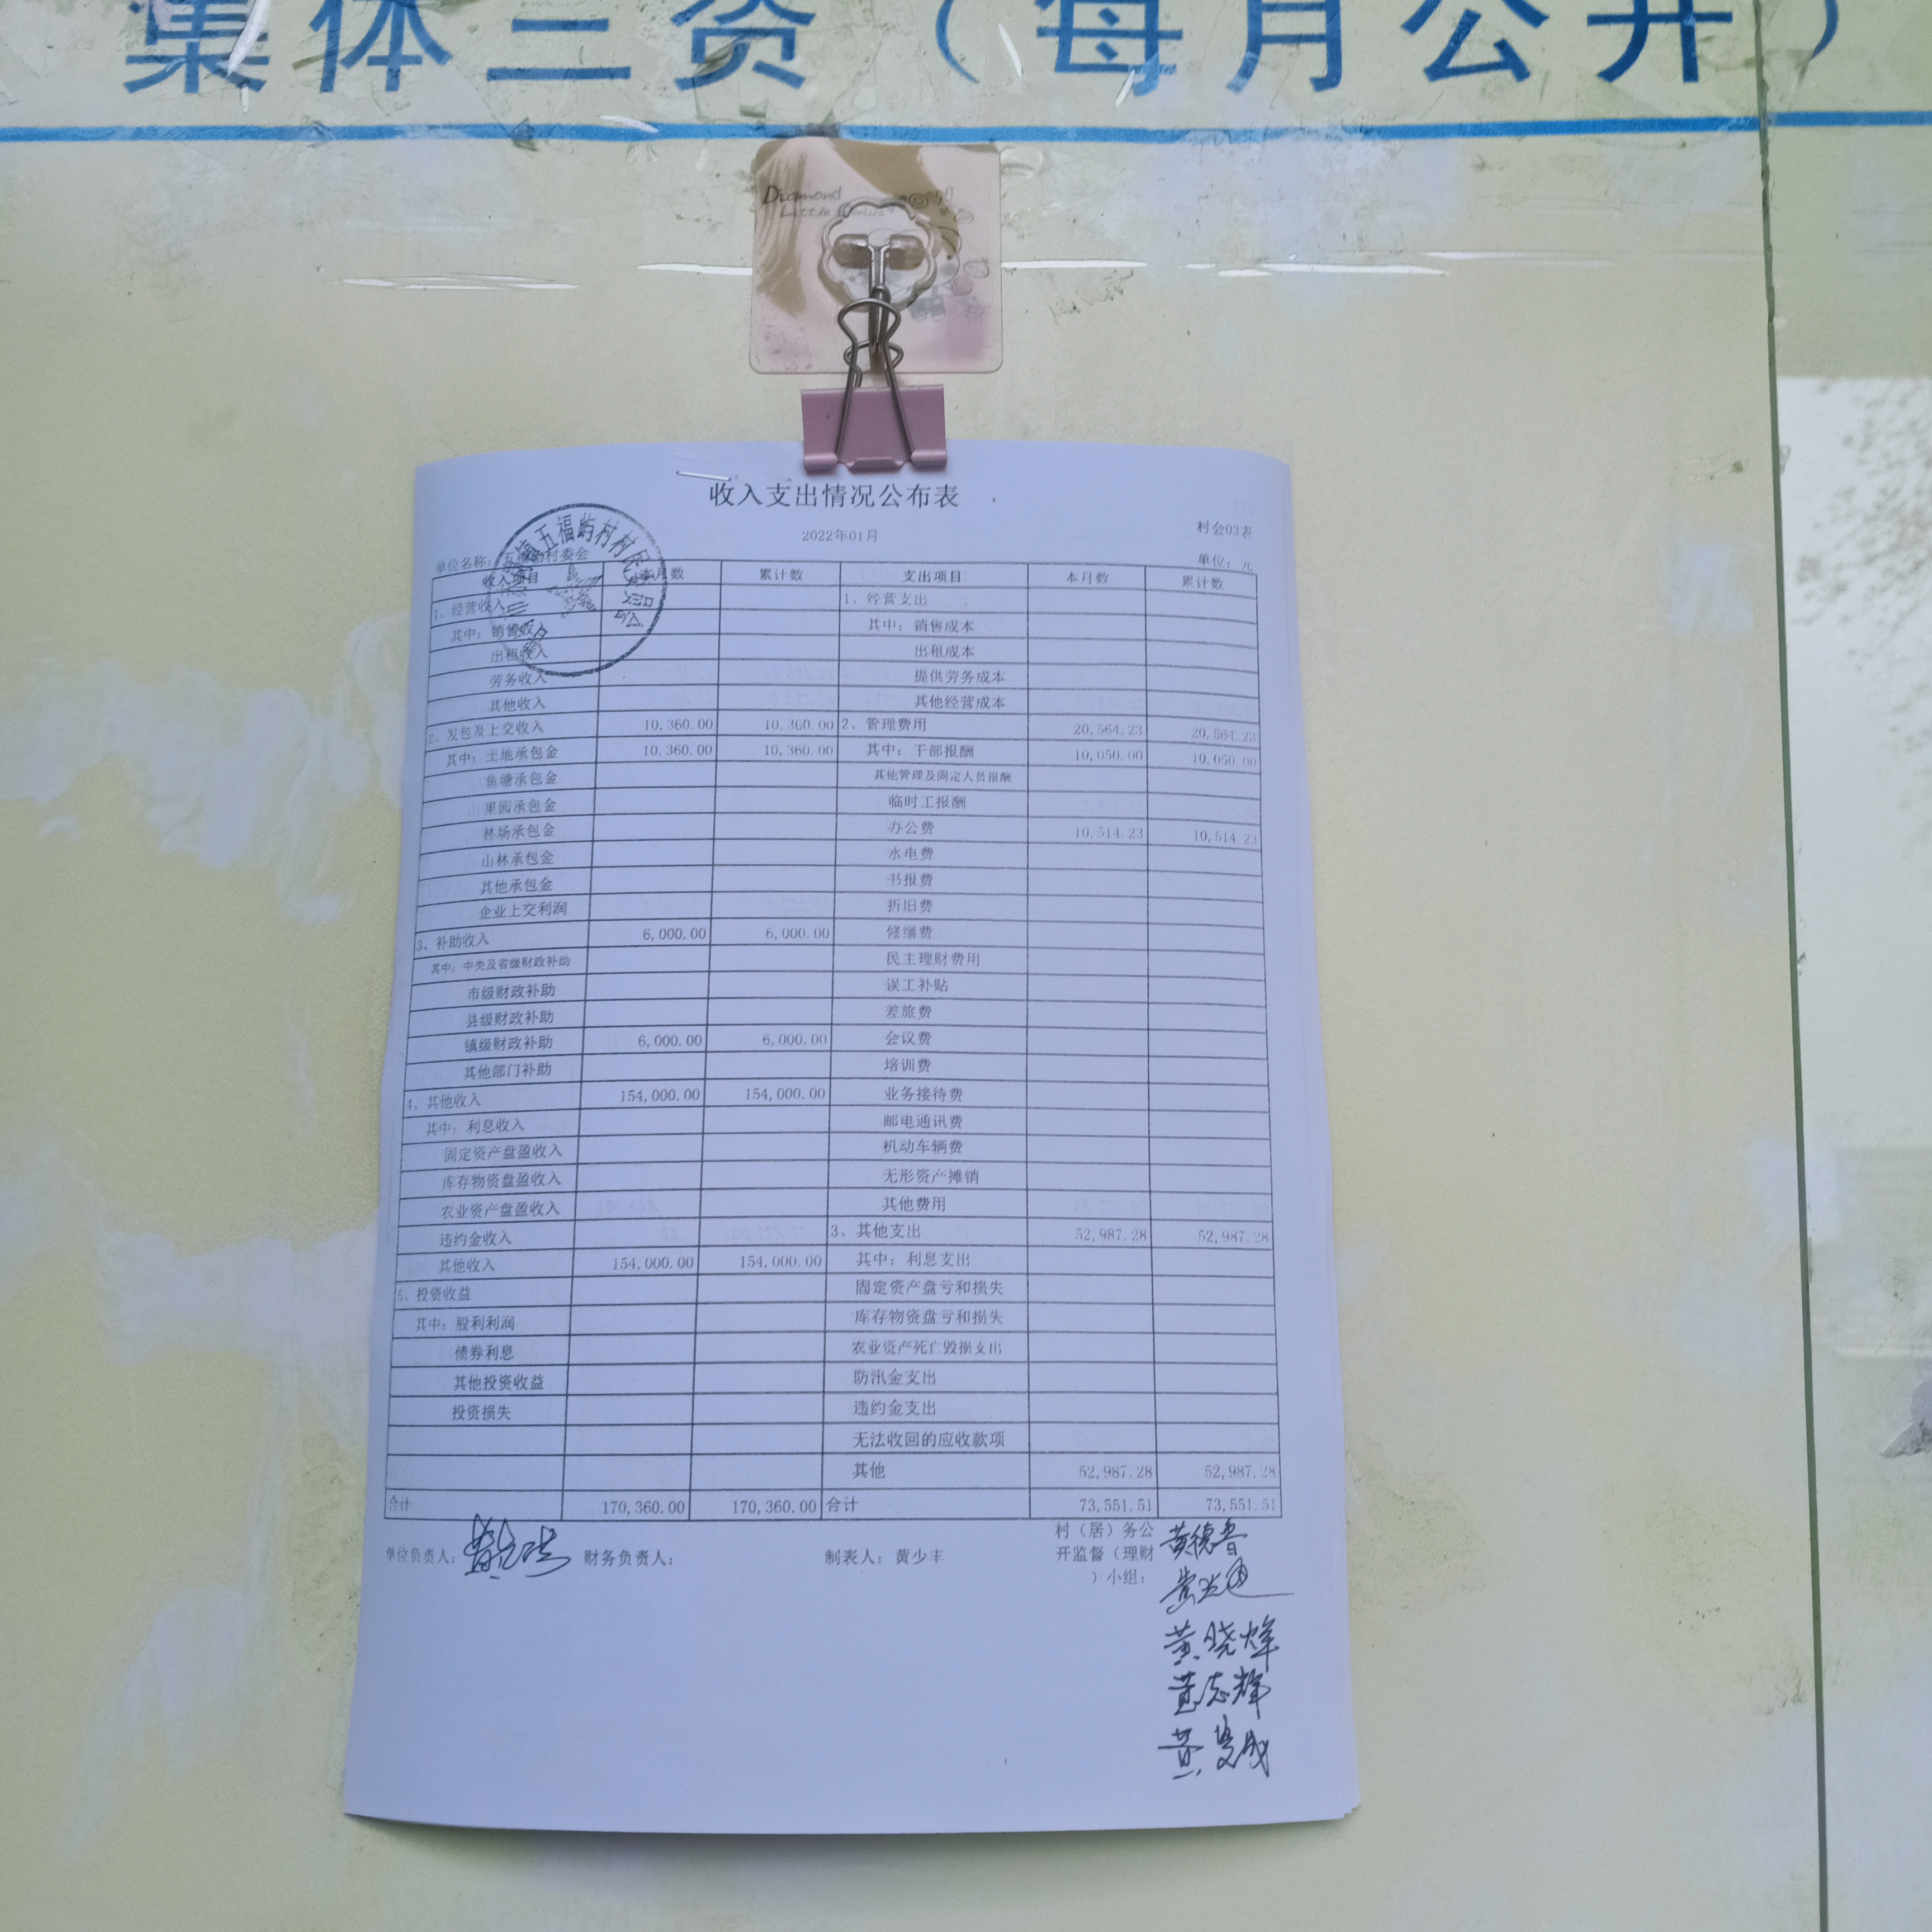 集体三资（每月公开）
Diamond
Little
收入支出情况公布表
2022年01月
村会03表
单位名称：五福屿村委会
单位：元
镇五福屿村村民委员会
收入项目 本月数 累计数 支出项目 本月数 累计数
1、经营收入 1、经营支出
其中：销售收入 其中：销售成本
出租收入 出租成本
劳务收入 提供劳务成本
其他收入 其他经营成本
2、发包及上交收入 10,360.00 10,360.00 2、管理费用 20,564.23 20,564.23
其中：土地承包金 10,360.00 10,360.00 其中：干部报酬 10,050.00 10,050.00
鱼塘承包金 其他管理及固定人员报酬
果园承包金 临时工报酬
林场承包金 办公费 10,514.23 10,514.23
山林承包金 水电费
其他承包金 书报费
企业上交利润 折旧费
3、补助收入 6,000.00 6,000.00 修缮费
其中：中央及省级财政补助 民主理财费用
市级财政补助 误工补贴
县级财政补助 差旅费
镇级财政补助 6,000.00 6,000.00 会议费
其他部门补助 培训费
4、其他收入 154,000.00 154,000.00 业务接待费
其中：利息收入 邮电通讯费
固定资产盘盈收入 机动车辆费
库存物资盘盈收入 无形资产摊销
农业资产盘盈收入 其他费用
违约金收入 3、其他支出 52,987.28 52,987.28
其他收入 154,000.00 154,000.00 其中：利息支出
5、投资收益 固定资产盘亏和损失
其中：股利利润 库存物资盘亏和损失
债券利息 农业资产死亡毁损支出
其他投资收益 防汛金支出
投资损失 违约金支出
无法收回的应收款项
其他 52,987.28 52,987.28
合计 170,360.00 170,360.00 合计 73,551.51 73,551.51
单位负责人： 财务负责人： 制表人：黄少丰
村（居）务公
开监督（理财
）小组：
黄德鲁
黄晓烽
黄志辉